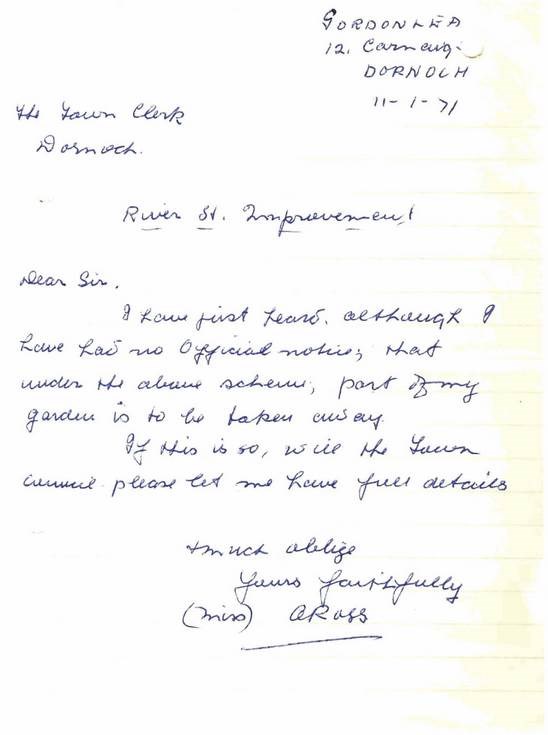 GORDONLEA
12.
DORNOCH
11-1-71
The Town Clerk
Dornoch.
River St. Improvement
Dear Sir.
I have just heard, although I
have had no Official notice; that
under the above scheme, part of my
garden is to be taken away
If this is so, will the Town
council please let me have full details
& much oblige
Yours faithfully
(Miss) A Ross